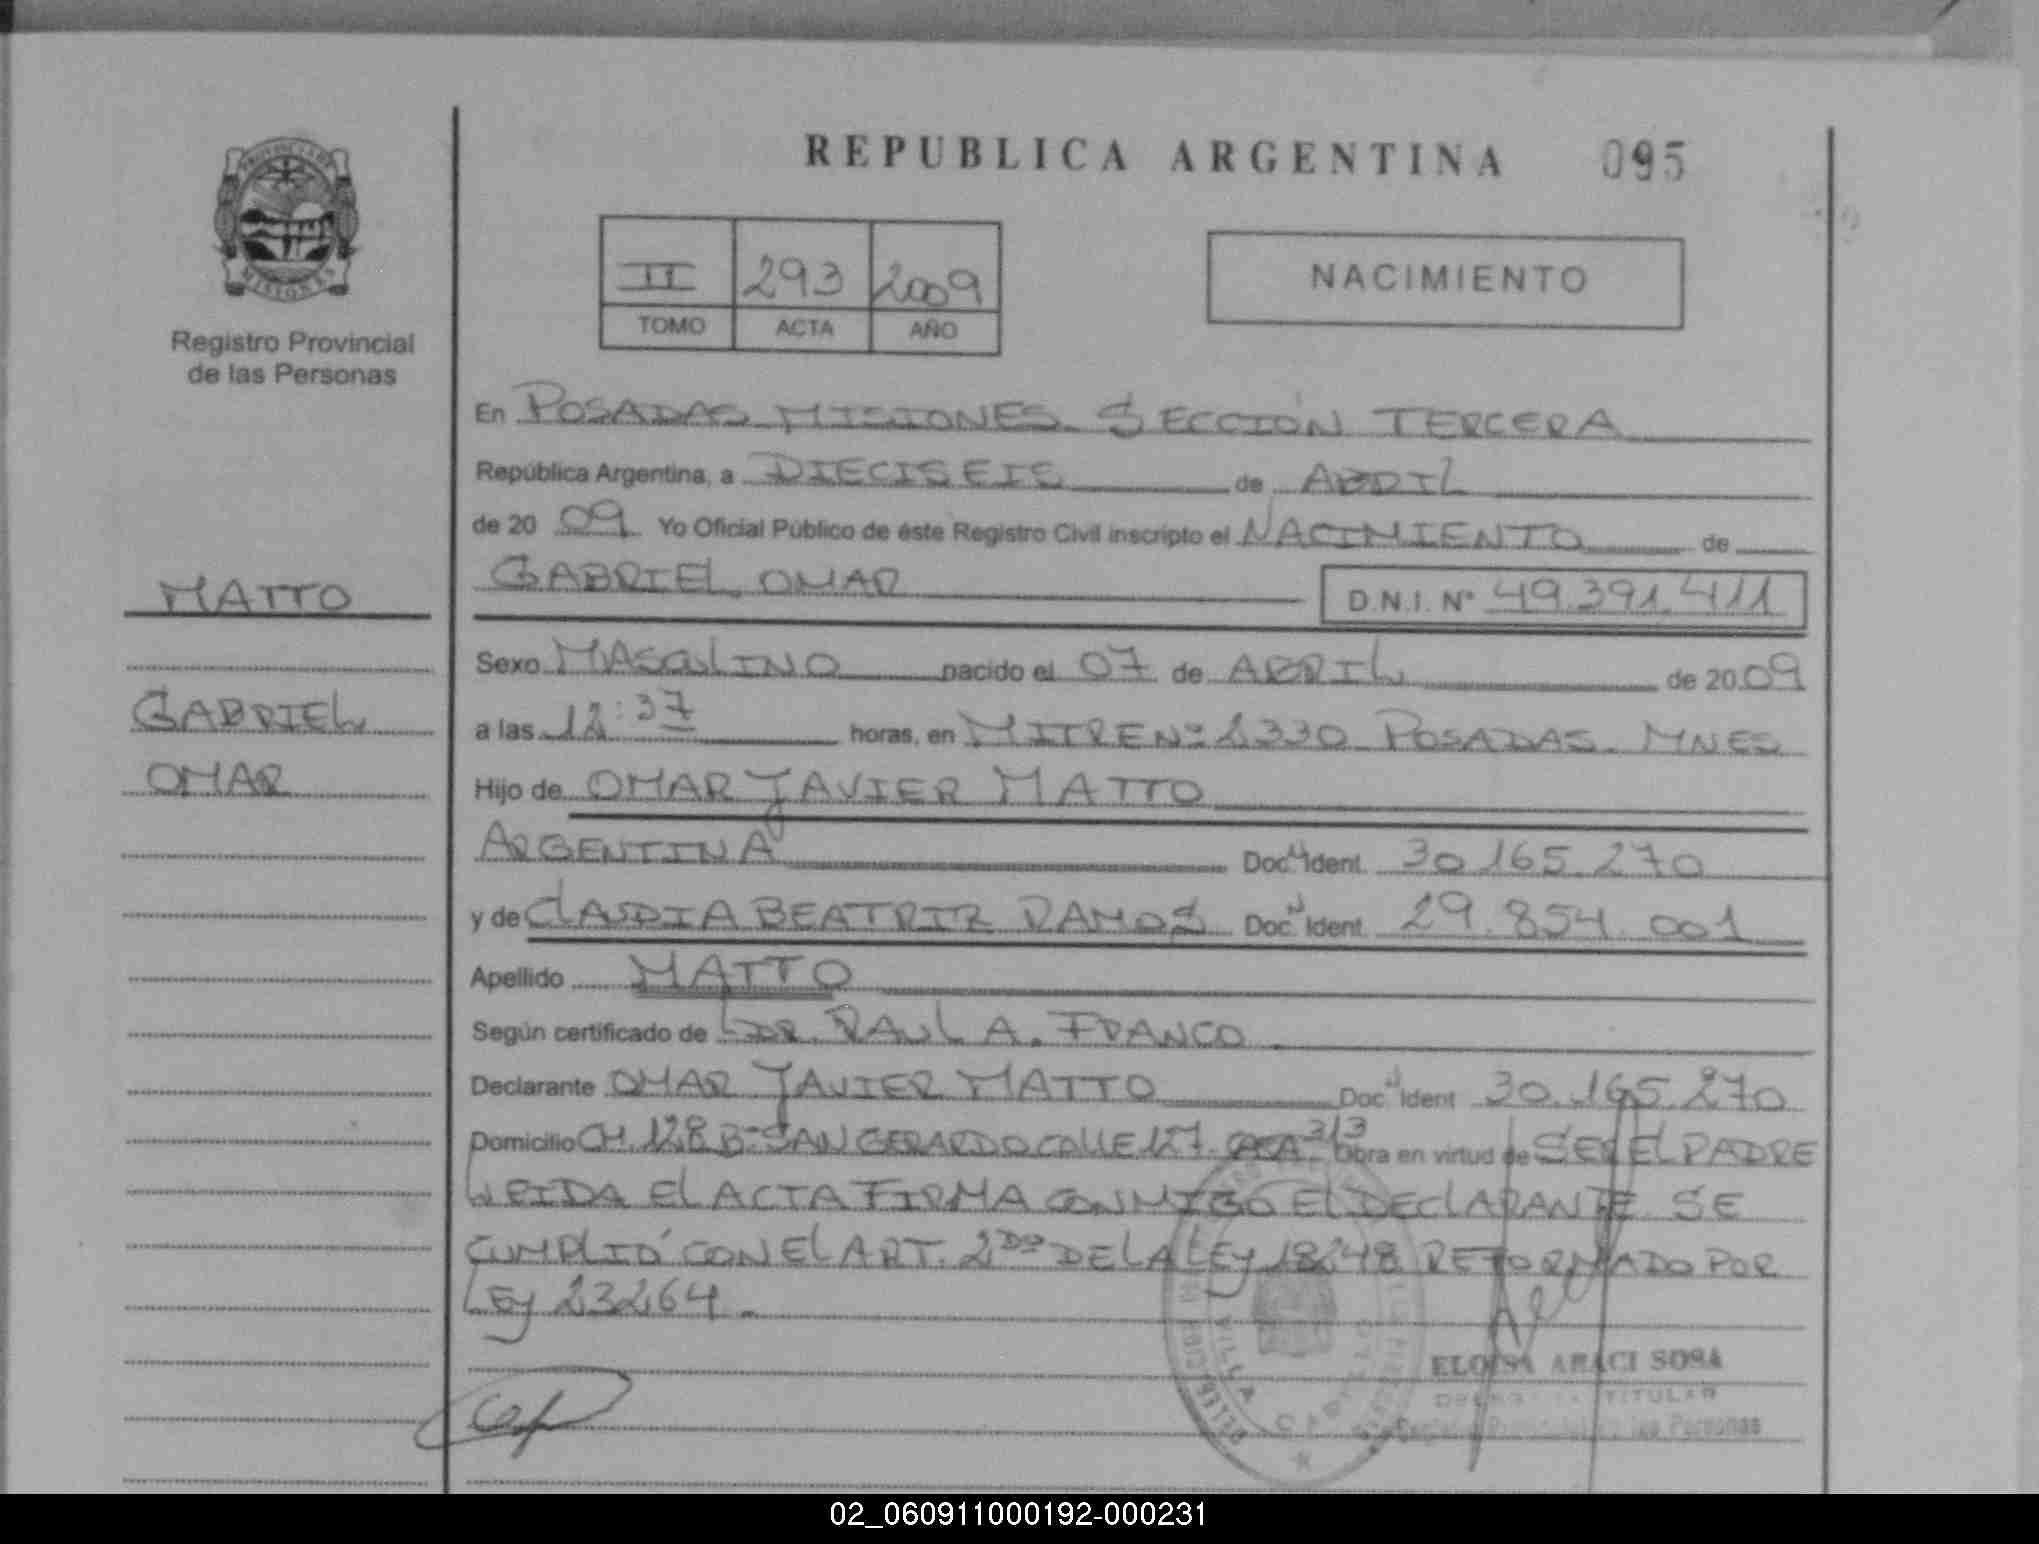 REPUBLICA ARGENTINA 095
PROVINCIA DE
MISIONES
Registro Provincial
de las Personas
II 293 2009
TOMO ACTA AÑO
NACIMIENTO
En POSADAS MISIONES SECCIÓN TERCERA
República Argentina, a DIECISEIS de ABRIL
de 20 09 Yo Oficial Público de éste Registro Civil inscripto el NACIMIENTO de
GABRIEL OMAR D.N.I. Nº 49.391.411
MATTO
Sexo MASCULINO nacido el 07 de ABRIL de 2009
GABRIEL
a las 12:37 horas, en MITRE Nº 2330 POSADAS. MNES
OMAR
Hijo de OMAR JAVIER MATTO
ARGENTINA Doc. Ident. 30.165.270
y de CLAUDIA BEATRIZ RAMOS Doc. Ident. 29.854.001
Apellido MATTO
Según certificado de DR. RAUL A. FRANCO
Declarante OMAR JAVIER MATTO Doc. Ident. 30.165.270
Domicilio CH. 128 Bº SAN GERARDO CALLE 127. CASA 313 Obra en virtud de SER EL PADRE
LEIDA EL ACTA FIRMA CONMIGO EL DECLARANTE. SE
CUMPLIÓ CON EL ART. 2DO DE LA LEY 18248 REFORMADO POR
LEY 23264.
ELOISA ARACI SOSA
TITULAR
Registro Provincial de las Personas
VILLA CABELLO
02_060911000192-000231